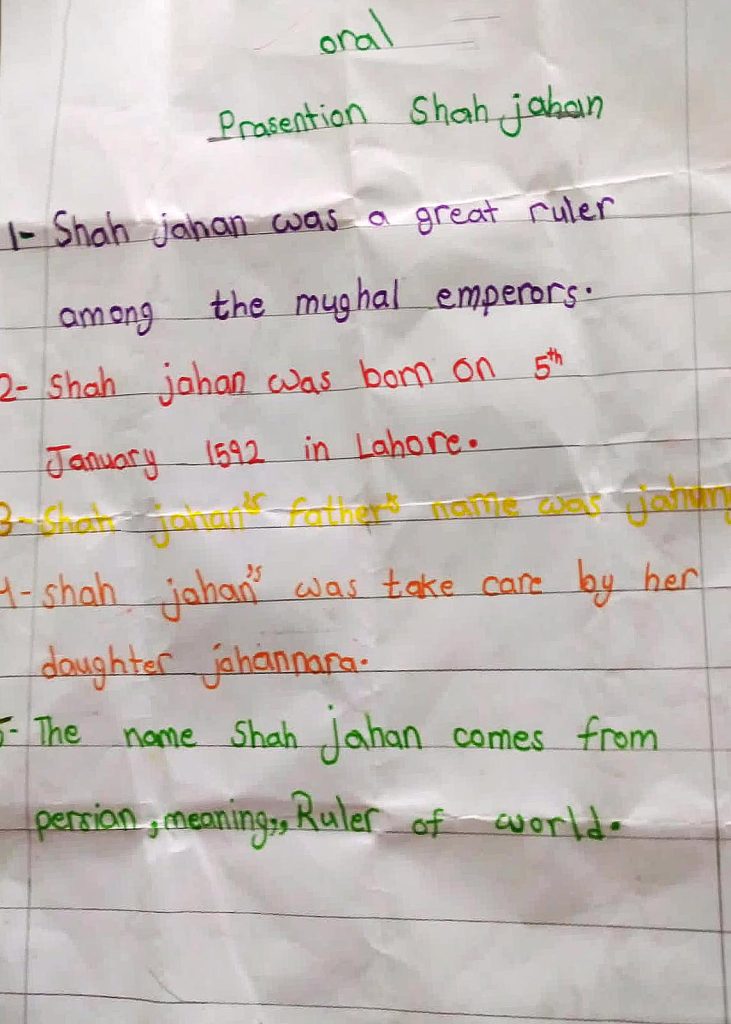 oral
Prasention Shah jahan
1- Shah jahan was a great ruler
among the mughal emperors.
2- Shah jahan was born on 5th
January 1592 in Lahore.
3- Shah jahan's father's name was
4- shah jahan's was take care by her
daughter jahannara.
5- The name Shah jahan comes from
persian, meaning,, Ruler of world.